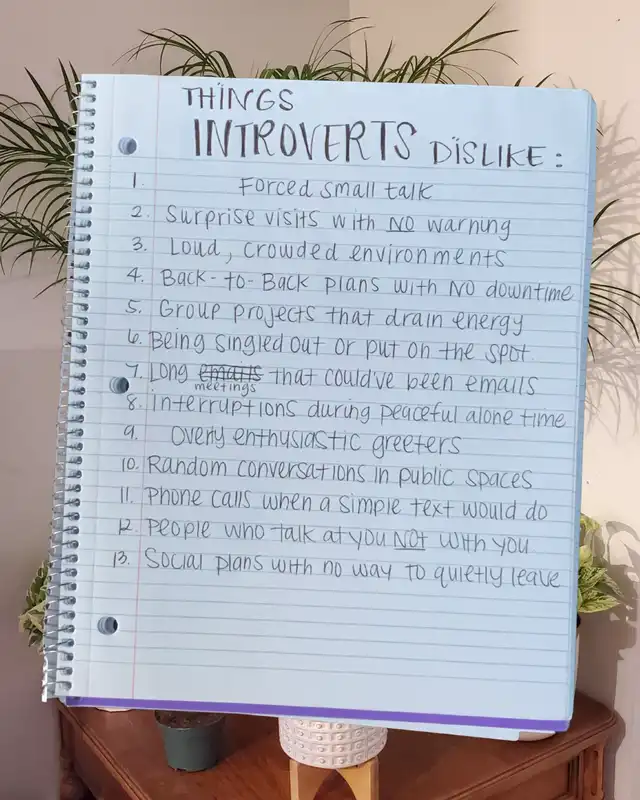 THINGS
INTROVERTS DISLIKE:
1. Forced small talk
2. Surprise visits with NO warning
3. Loud, crowded environments
4. Back-to-Back plans with NO downtime
5. Group projects that drain energy
6. Being singled out or put on the spot.
7. Long emails that could've been emails
meetings
8. Interruptions during peaceful alone time
9. Overly enthusiastic greeters
10. Random conversations in public spaces
11. Phone calls when a simple text would do
12. People who talk at you NOT with you
13. Social plans with no way to quietly leave